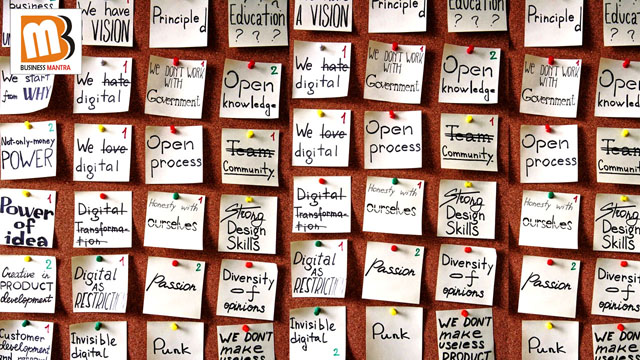 M
BUSINESS MANTRA
business
We have
VISION
Principled
Education
? ? ?
A VISION
Principled
Education
? ? ?
Principled
Education
? ? ?
We start
from WHY
1
We hate
digital
We DON'T WORK
WITH
Government
2
Open
knowledge
1
We hate
digital
We DON'T WORK
WITH
Government
2
Open
knowledge
We DON'T WORK
WITH
Government
Open
knowledge
2
Not-only-money
POWER
1
We love
digital
Open
process
1
Team
Community
1
We love
digital
Open
process
1
Team
Community
Open
process
Team
Community
Power
of idea
1
Digital
Transforma-
tion
Honesty with
ourselves
Strong
Design
Skills
1
Digital
Transforma-
tion
1
Honesty with
ourselves
Strong
Design
Skills
Honesty with
ourselves
Strong
Design
Skills
2
Creative in
PRODUCT
development
1
Digital
AS
RESTRICTION
2
Passion
Diversity
of
opinions
1
Digital
AS
RESTRICTION
2
Passion
Diversity
of
opinions
2
Passion
Diversity
of
opinions
Customer
development
Invisible
digital
Punk
WE DON'T
make
useless
PRODUCT
Invisible
digital
2
Punk
WE DON'T
make
useless
PRODUCT
Punk
WE DON'T
make
useless